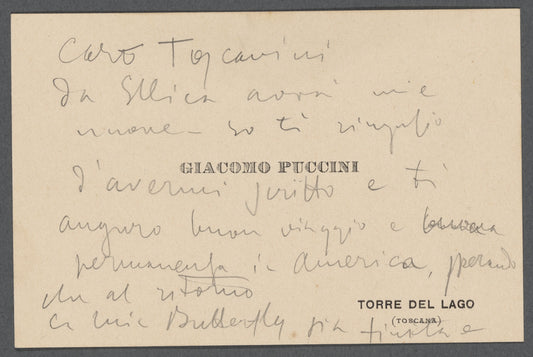 Caro Toscanini
Da Illica avrai mie
nuove – io ti ringrazio
GIACOMO PUCCINI
d'avermi scritto e ti
auguro buon viaggio e buona
permanenza in America, sperando
che al ritorno
TORRE DEL LAGO
(TOSCANA)
la mia Butterfly sia finita e